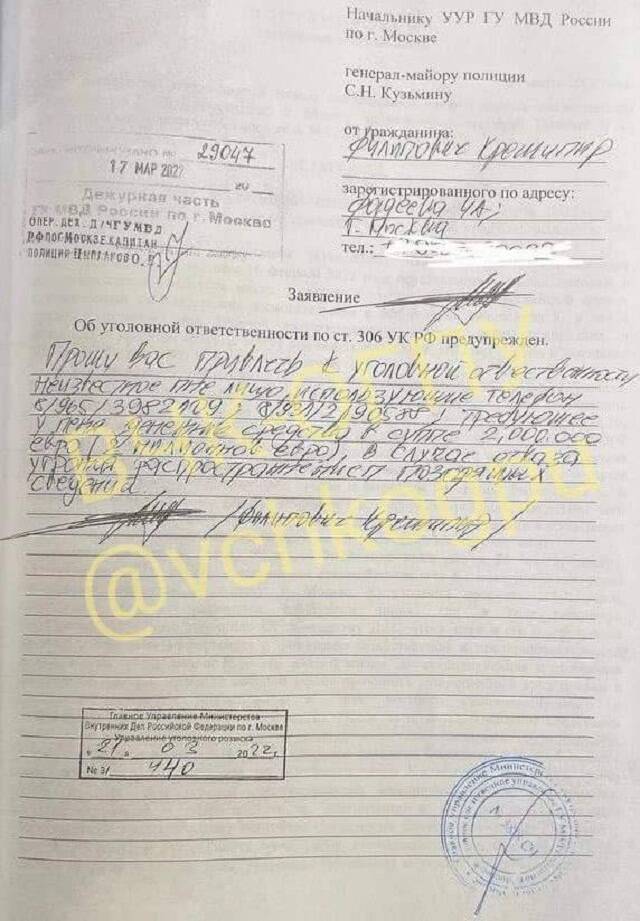 Начальнику УУР ГУ МВД России
по г. Москве
генерал-майору полиции
С.Н. Кузьмину
от гражданина:
Филипович Крешимир
зарегистрированного по адресу:
Фадеева 4А,
г. Москва
тел.:
29047
17 МАР 2022
20
Дежурная часть
ГУ МВД России по г. Москве
ОПЕР. ДЕЖ. Д/Ч ГУ МВД
РФ ПО Г. МОСКВЕ КАПИТАН
ПОЛИЦИИ
Заявление
Об уголовной ответственности по ст. 306 УК РФ предупрежден.
Прошу Вас привлечь к уголовной ответственности
неизвестное мне лицо, использующие телефон
требующее
у меня денежные средства в сумме 2,000.000
евро (2 миллионов евро), в случае отказа
угрожая распространением позорящих
сведений
/Филипович Крешимир/
ВЧК-ОГПУ
@vchkogpu
Главное Управление Министерства
Внутренних Дел Российской Федерации по г. Москве
Управление уголовного розыска
« 21 » 03 2022 г.
№ 3/ 440